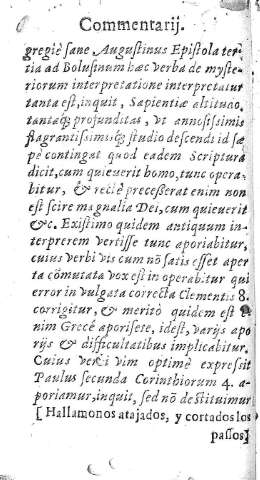 Commentarij.
gregiè sane Augustinus Epistola ter
tia ad Bolusinum hæc verba de myste
riorum interpretatione interpretatur
tanta est, inquit, Sapientiæ altituao,
tantaq; profunditas, vt annosissimis
flagrantissimisq; studio descendi id sæ
pè contingat quod eadem Scriptura
dicit, cum quieuerit homo, tunc opera-
bitur, & rectè præcesserat enim non
est scire magnalia Dei, cum quieuerit
&c. Existimo quidem antiquum in-
terpretem vertisse tunc aporiabitur,
cuius verbi vis cum nō satis esset aper
ta cōmutata vox est in operabitur qui
error in vulgata correcta Clementis 8.
corrigitur, & meritò quidem est
nim Grecè aporisete, idest, varijs apo
rijs & difficultatibus implicabitur.
Cuius verbi vim optimè expressit
Paulus secunda Corinthiorum 4. a-
poriamur, inquit, sed nō destituimur
[Hallamonos atajados, y cortados los
passos]